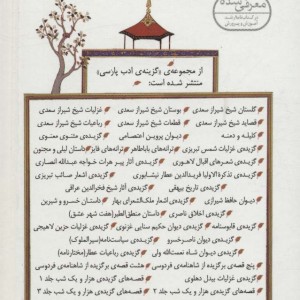 معرفی شده
در کتابنامه رشد
آموزش و پرورش
از مجموعه‌ی «گزینه‌ی ادب پارسی»
منتشر شده است:
گلستان شیخ شیراز سعدی بوستان شیخ شیراز سعدی غزلیات شیخ شیراز سعدی
قصاید شیخ شیراز سعدی قطعات شیخ شیراز سعدی رباعیات شیخ شیراز سعدی
کلیله و دمنه دیوان پروین اعتصامی گزیده‌ی مثنوی معنوی
گزیده‌ی غزلیات شمس تبریزی ترانه‌های باباطاهر ترانه‌های فایز داستان لیلی و مجنون
گزیده‌ی شعرهای اقبال لاهوری گزیده‌ی آثار پیر هرات خواجه عبدالله انصاری
گزیده‌ی تذکرةالاولیا فریدالدین عطار نیشابوری گزیده‌ی اشعار صائب تبریزی
گزیده‌ی تاریخ بیهقی گزیده‌ی آثار شیخ فخرالدین عراقی
دیوان حافظ شیرازی گزیده‌ی اشعار ملک‌الشعرای بهار داستان خسرو و شیرین
گزیده‌ی اخلاق ناصری داستان منطق‌الطیر(هفت شهر عشق)
گزیده‌ی قابوسنامه گزیده‌ی دیوان حکیم سنایی غزنوی گزیده‌ی غزلیات حزین لاهیجی
گزیده‌ی دیوان ناصرخسرو گزیده‌ی سیاست‌نامه(سیرالملوک)
گزیده‌ی دیوان شاه نعمت‌الله ولی گزیده‌ی رباعیات عطار(مختارنامه)
پنج قصه‌ی برگزیده از شاهنامه‌ی فردوسی هشت قصه‌ی برگزیده از شاهنامه‌ی فردوسی
گزیده‌ی غزلیات بیدل دهلوی قصه‌های گزیده‌ی هزار و یک شب جلد ۱
قصه‌های گزیده‌ی هزار و یک شب جلد ۲ قصه‌های گزیده‌ی هزار و یک شب جلد ۳